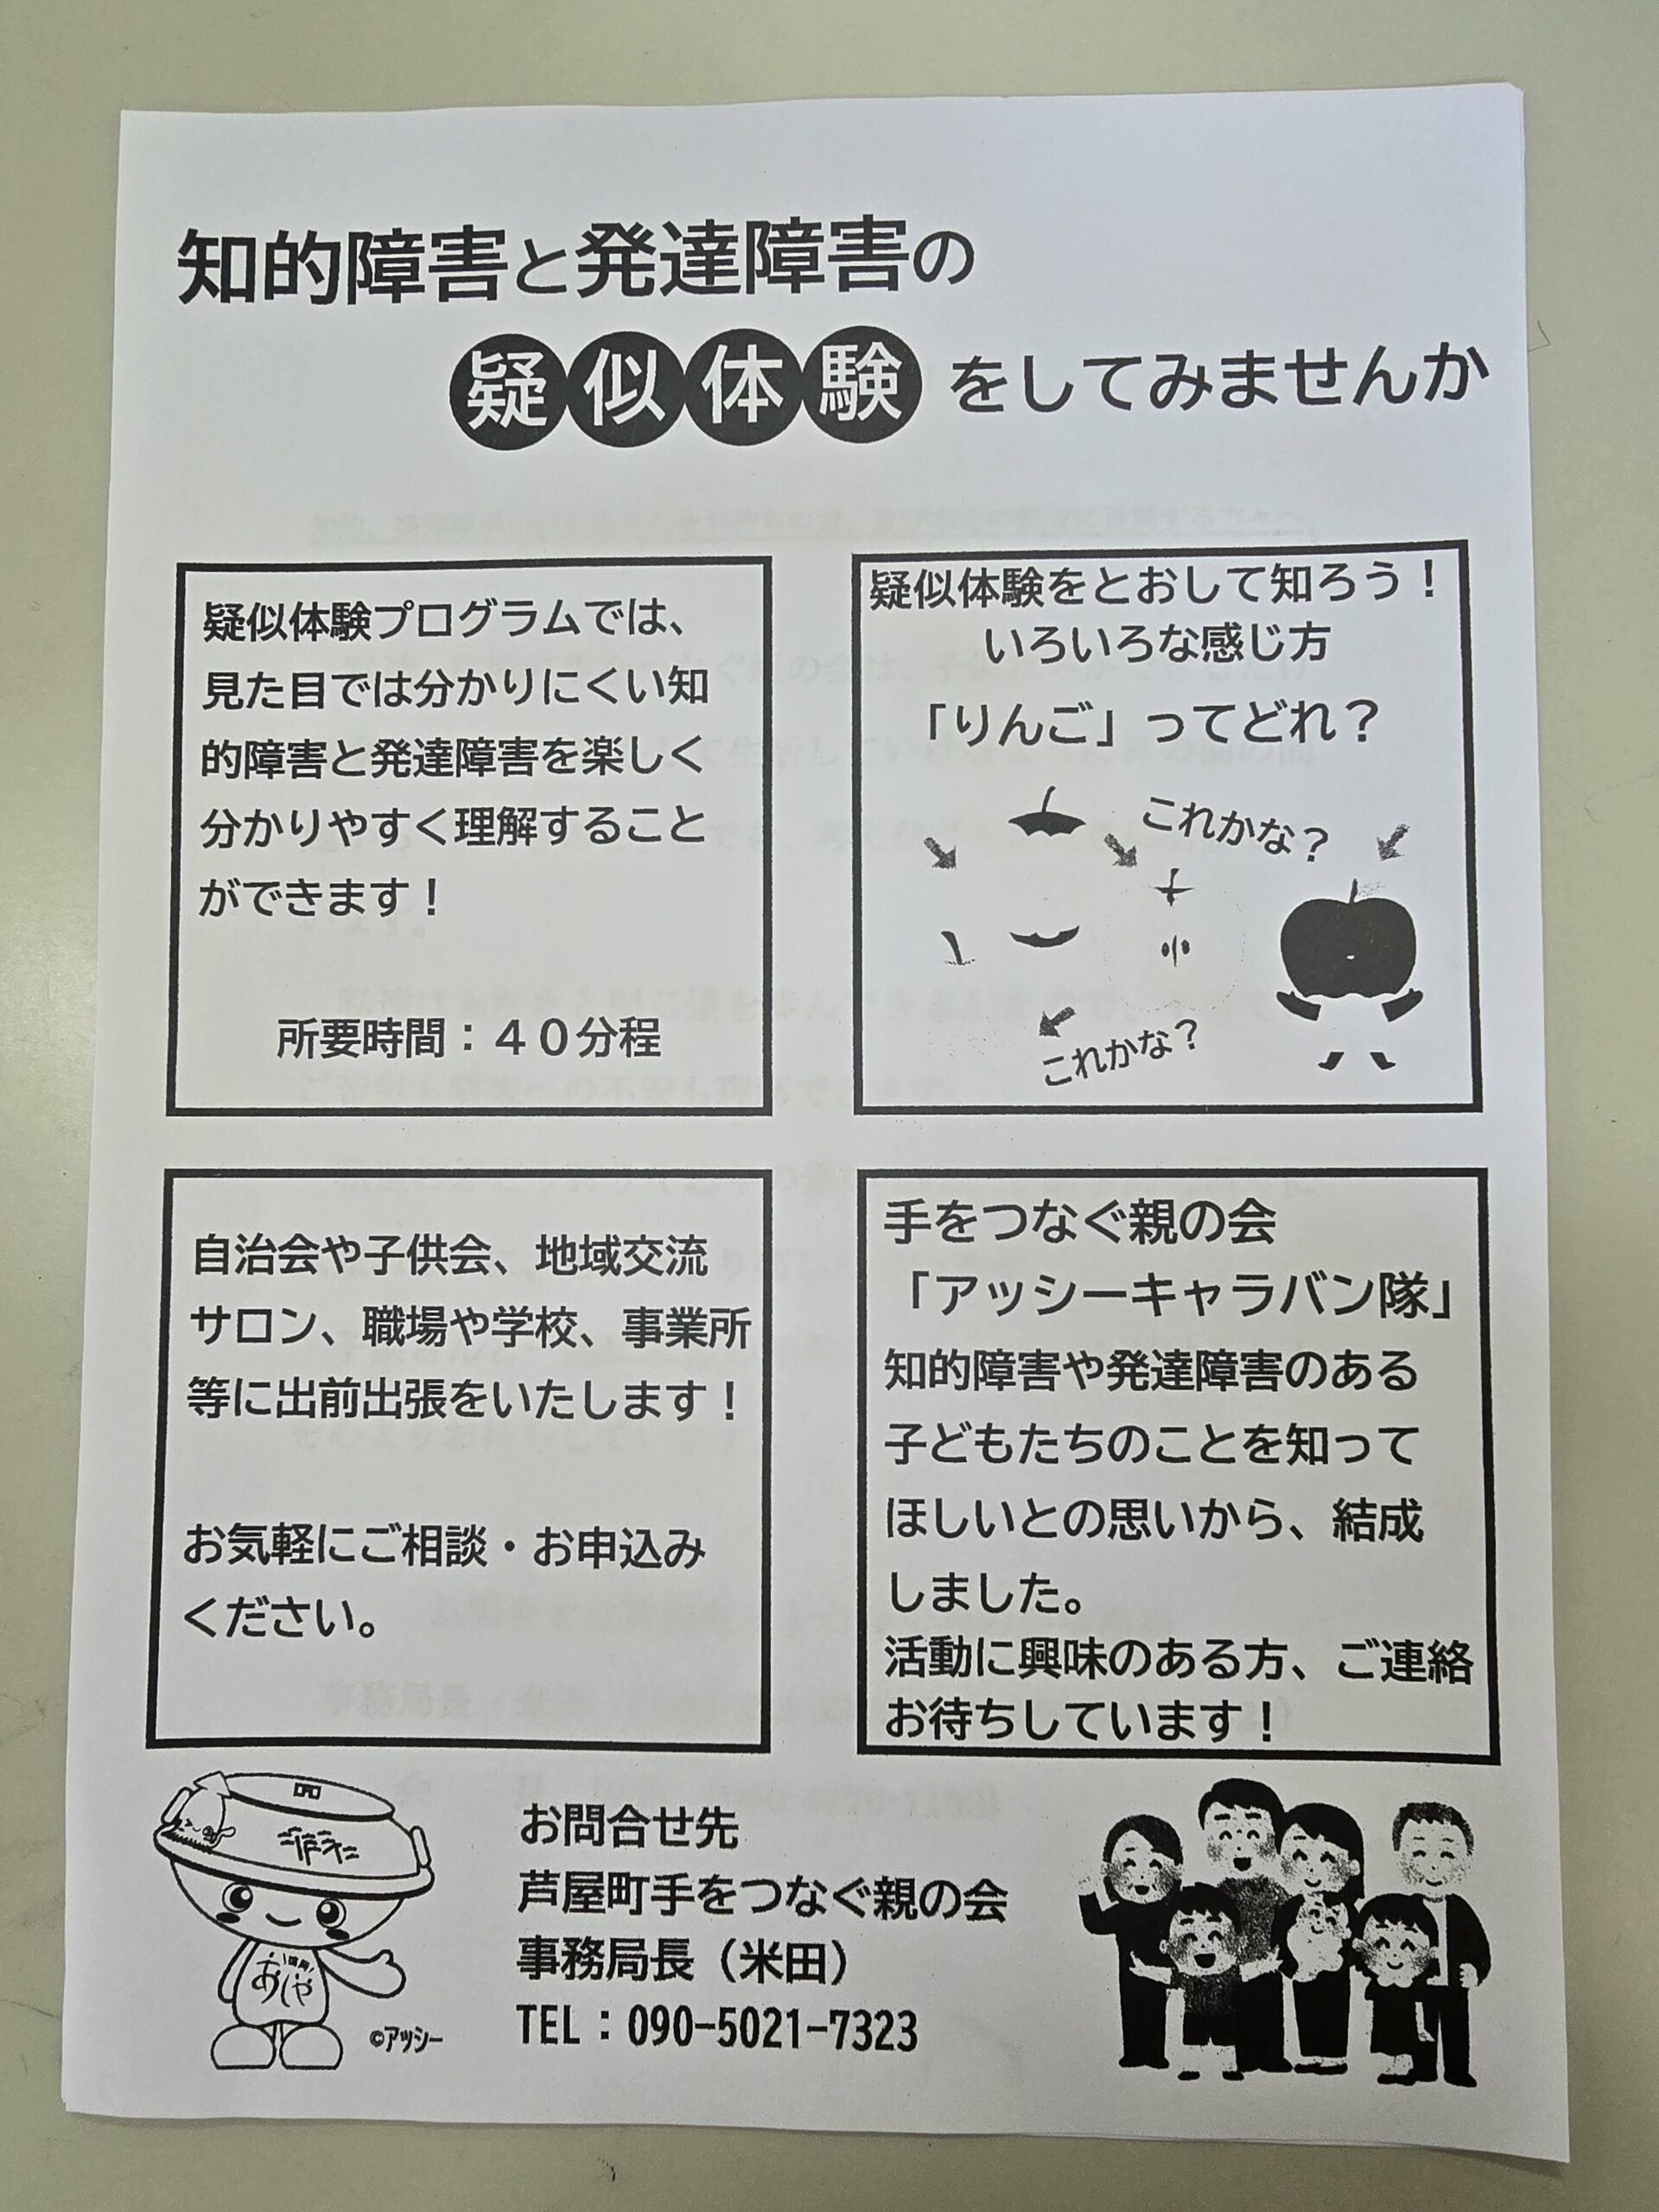 知的障害と発達障害の
疑似体験をしてみませんか
疑似体験プログラムでは、
見た目では分かりにくい知
的障害と発達障害を楽しく
分かりやすく理解すること
ができます！
所要時間：４０分程
疑似体験をとおして知ろう！
いろいろな感じ方
「りんご」ってどれ？
これかな？
これかな？
自治会や子供会、地域交流
サロン、職場や学校、事業所
等に出前出張をいたします！
お気軽にご相談・お申込み
ください。
手をつなぐ親の会
「アッシーキャラバン隊」
知的障害や発達障害のある
子どもたちのことを知って
ほしいとの思いから、結成
しました。
活動に興味のある方、ご連絡
お待ちしています！
あしや
©アッシー
お問合せ先
芦屋町手をつなぐ親の会
事務局長（米田）
TEL：090-5021-7323